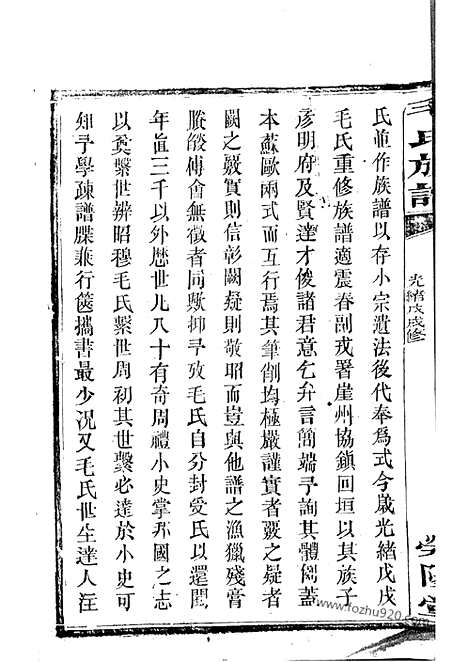 毛氏族譜
光緒戊戌修
滎陽堂
氏並作族譜以存小宗遺法後代奉爲式今歲光緒戊戌
毛氏重修族譜適震春副戎署崖州協鎮回垣以其族子
彥明府及賢達才俊諸君意乞弁言簡端予詢其體例蓋
本蘇歐兩式而互行焉其筆削均極嚴謹實者覈之疑者
闕之覈實則信彰闕疑則敬昭而豈與他譜之漁獵殘膏
賸馥傅會無徵者同歟抑予攷毛氏自分封受氏以還閱
年直三千以外歷世凡八十有奇周禮小史掌邦國之志
以奠繫世辨昭穆毛氏繫世周初其世繫必達於小史可
知予學疎譜牒兼行篋攜書最少況又毛氏世生達人汪
www.fozhu920.com